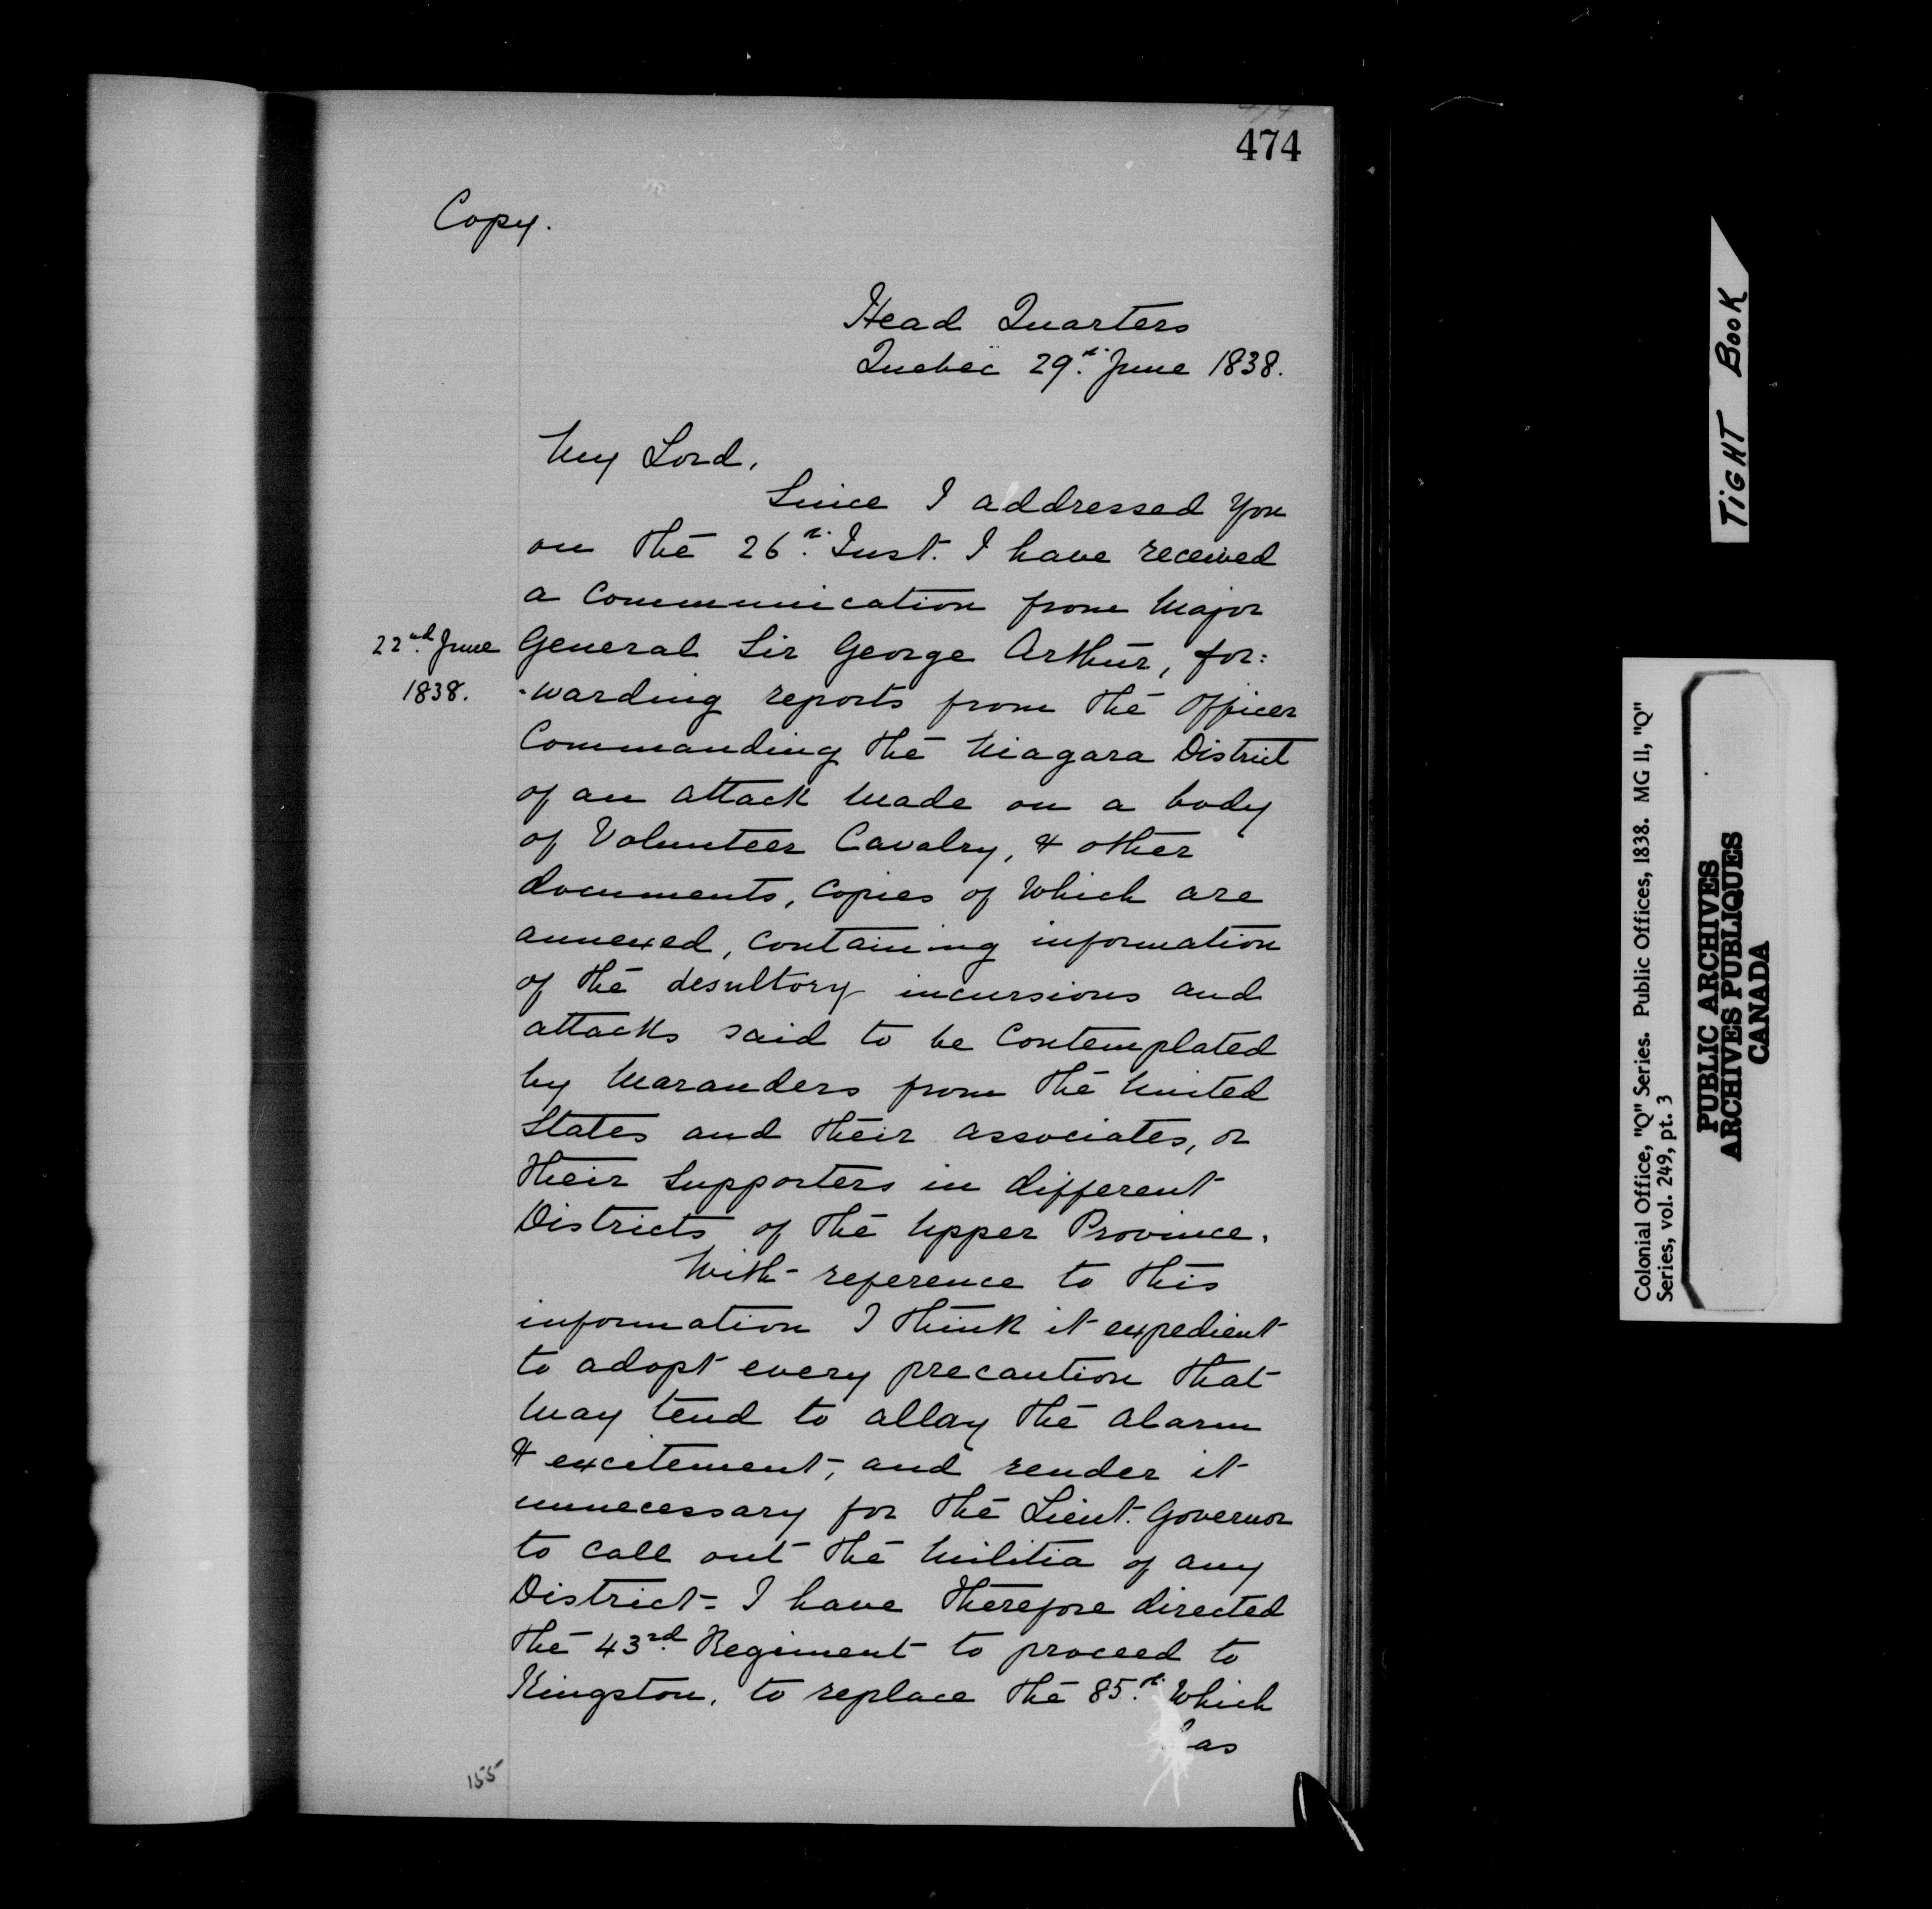 474
Copy.
Head Quarters
Quebec 29th. June 1838.
My Lord,
Since I addressed You
on the 26th. Inst. I have received
a Communication from Major
22nd. June
1838.
General Sir George Arthur, for:
-warding reports from the Officer
Commanding the Niagara District
of an attack made on a body
of Volunteer Cavalry, & other
documents, Copies of which are
annexed, containing information
of the desultory incursions and
attacks said to be Contemplated
by Marauders from the United
States and their associates, or
their Supporters in different
Districts of the Upper Province.
With reference to this
information I think it expedient
to adopt every precaution that
may tend to allay the alarm
& excitement, and render it
unnecessary for the Lieut. Governor
to call out the Militia of any
District - I have therefore directed
the 43rd. Regiment to proceed to
Kingston, to replace the 85th. which
has
155
TIGHT BOOK
Colonial Office, "Q" Series. Public Offices, 1838. MG 11, "Q"
Series, vol. 249, pt. 3
PUBLIC ARCHIVES
ARCHIVES PUBLIQUES
CANADA